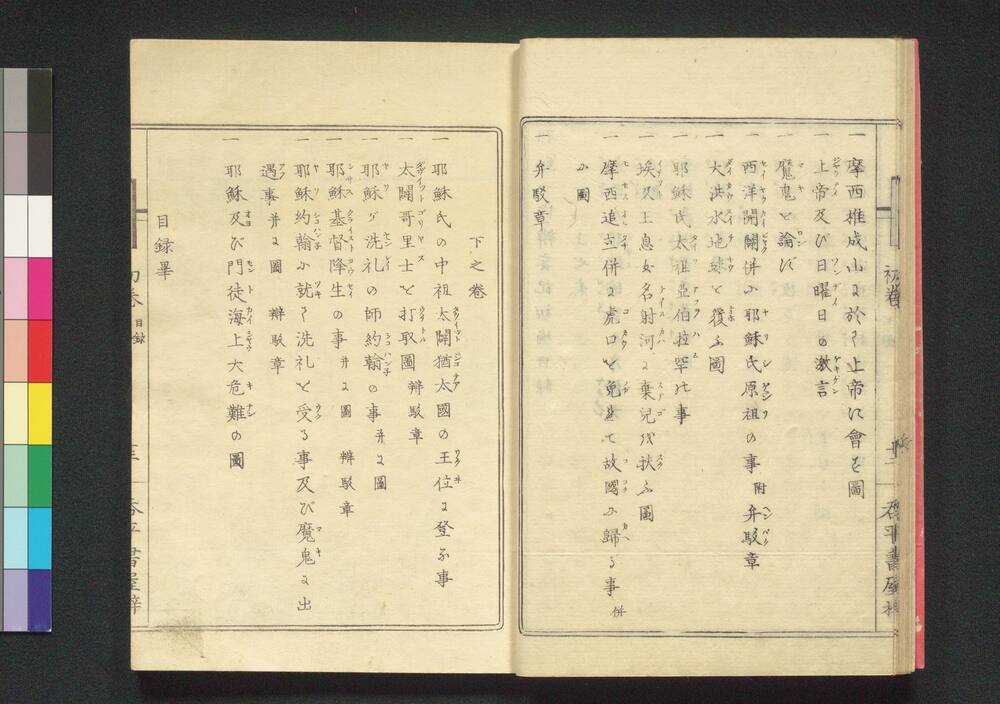 一 摩西椎成山に於て上帝に會す圖
一 上帝及び日曜日の激言
一 魔鬼を論ず
一 西洋開闢併に耶穌氏原祖の事 附弁駁章
一 大洪水地球を復ふ圖
一 耶穌氏太祖亞伯拉罕の事
一 埃及王息女名射河に棄兒を扶ふ圖
一 摩西追立併に虎口を免れて故國に歸る事 併
に圖
一 弁駁章
初卷
下之卷
一 耶穌氏の中祖太闢猶太國の王位に登る事
一 太闢哥里士を打取圖 辨駁章
一 耶穌が洗礼の師約翰の事 并に圖
一 耶穌基督降生の事 并に圖 辨駁章
一 耶穌約翰に就て洗礼を受る事及び魔鬼に出
遇事并に圖 辨駁章
一 耶穌及び門徒海上大危難の圖
目録畢
初卷 目録